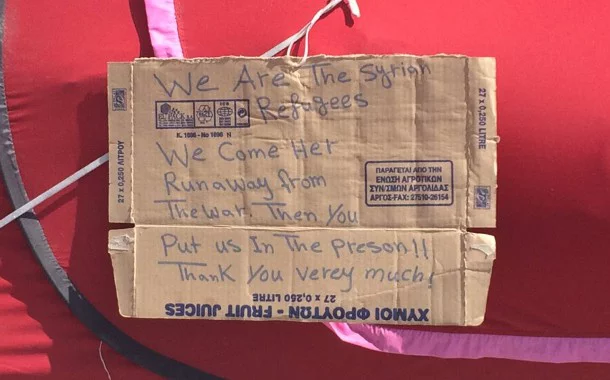 We Are The Syrian
Refugees
EL PACK S.A.
K. 1086 - No 1086 H
We Come Her
Runaway from
The war. Then You
Put us In The Preson!!
Thank You verey much!
27 x 0,250 ΛΙΤΡΟΥ
27 x 0,250 LITRE
ΠΑΡΑΓΕΤΑΙ ΑΠΟ ΤΗΝ
ΕΝΩΣΗ ΑΓΡΟΤΙΚΩΝ
ΣΥΝ/ΣΜΩΝ ΑΡΓΟΛΙΔΑΣ
ΑΡΓΟΣ-FAX: 27510-26154
ΧΥΜΟΙ ΦΡΟΥΤΩΝ - FRUIT JUICES
27 x 0,250 LITRE